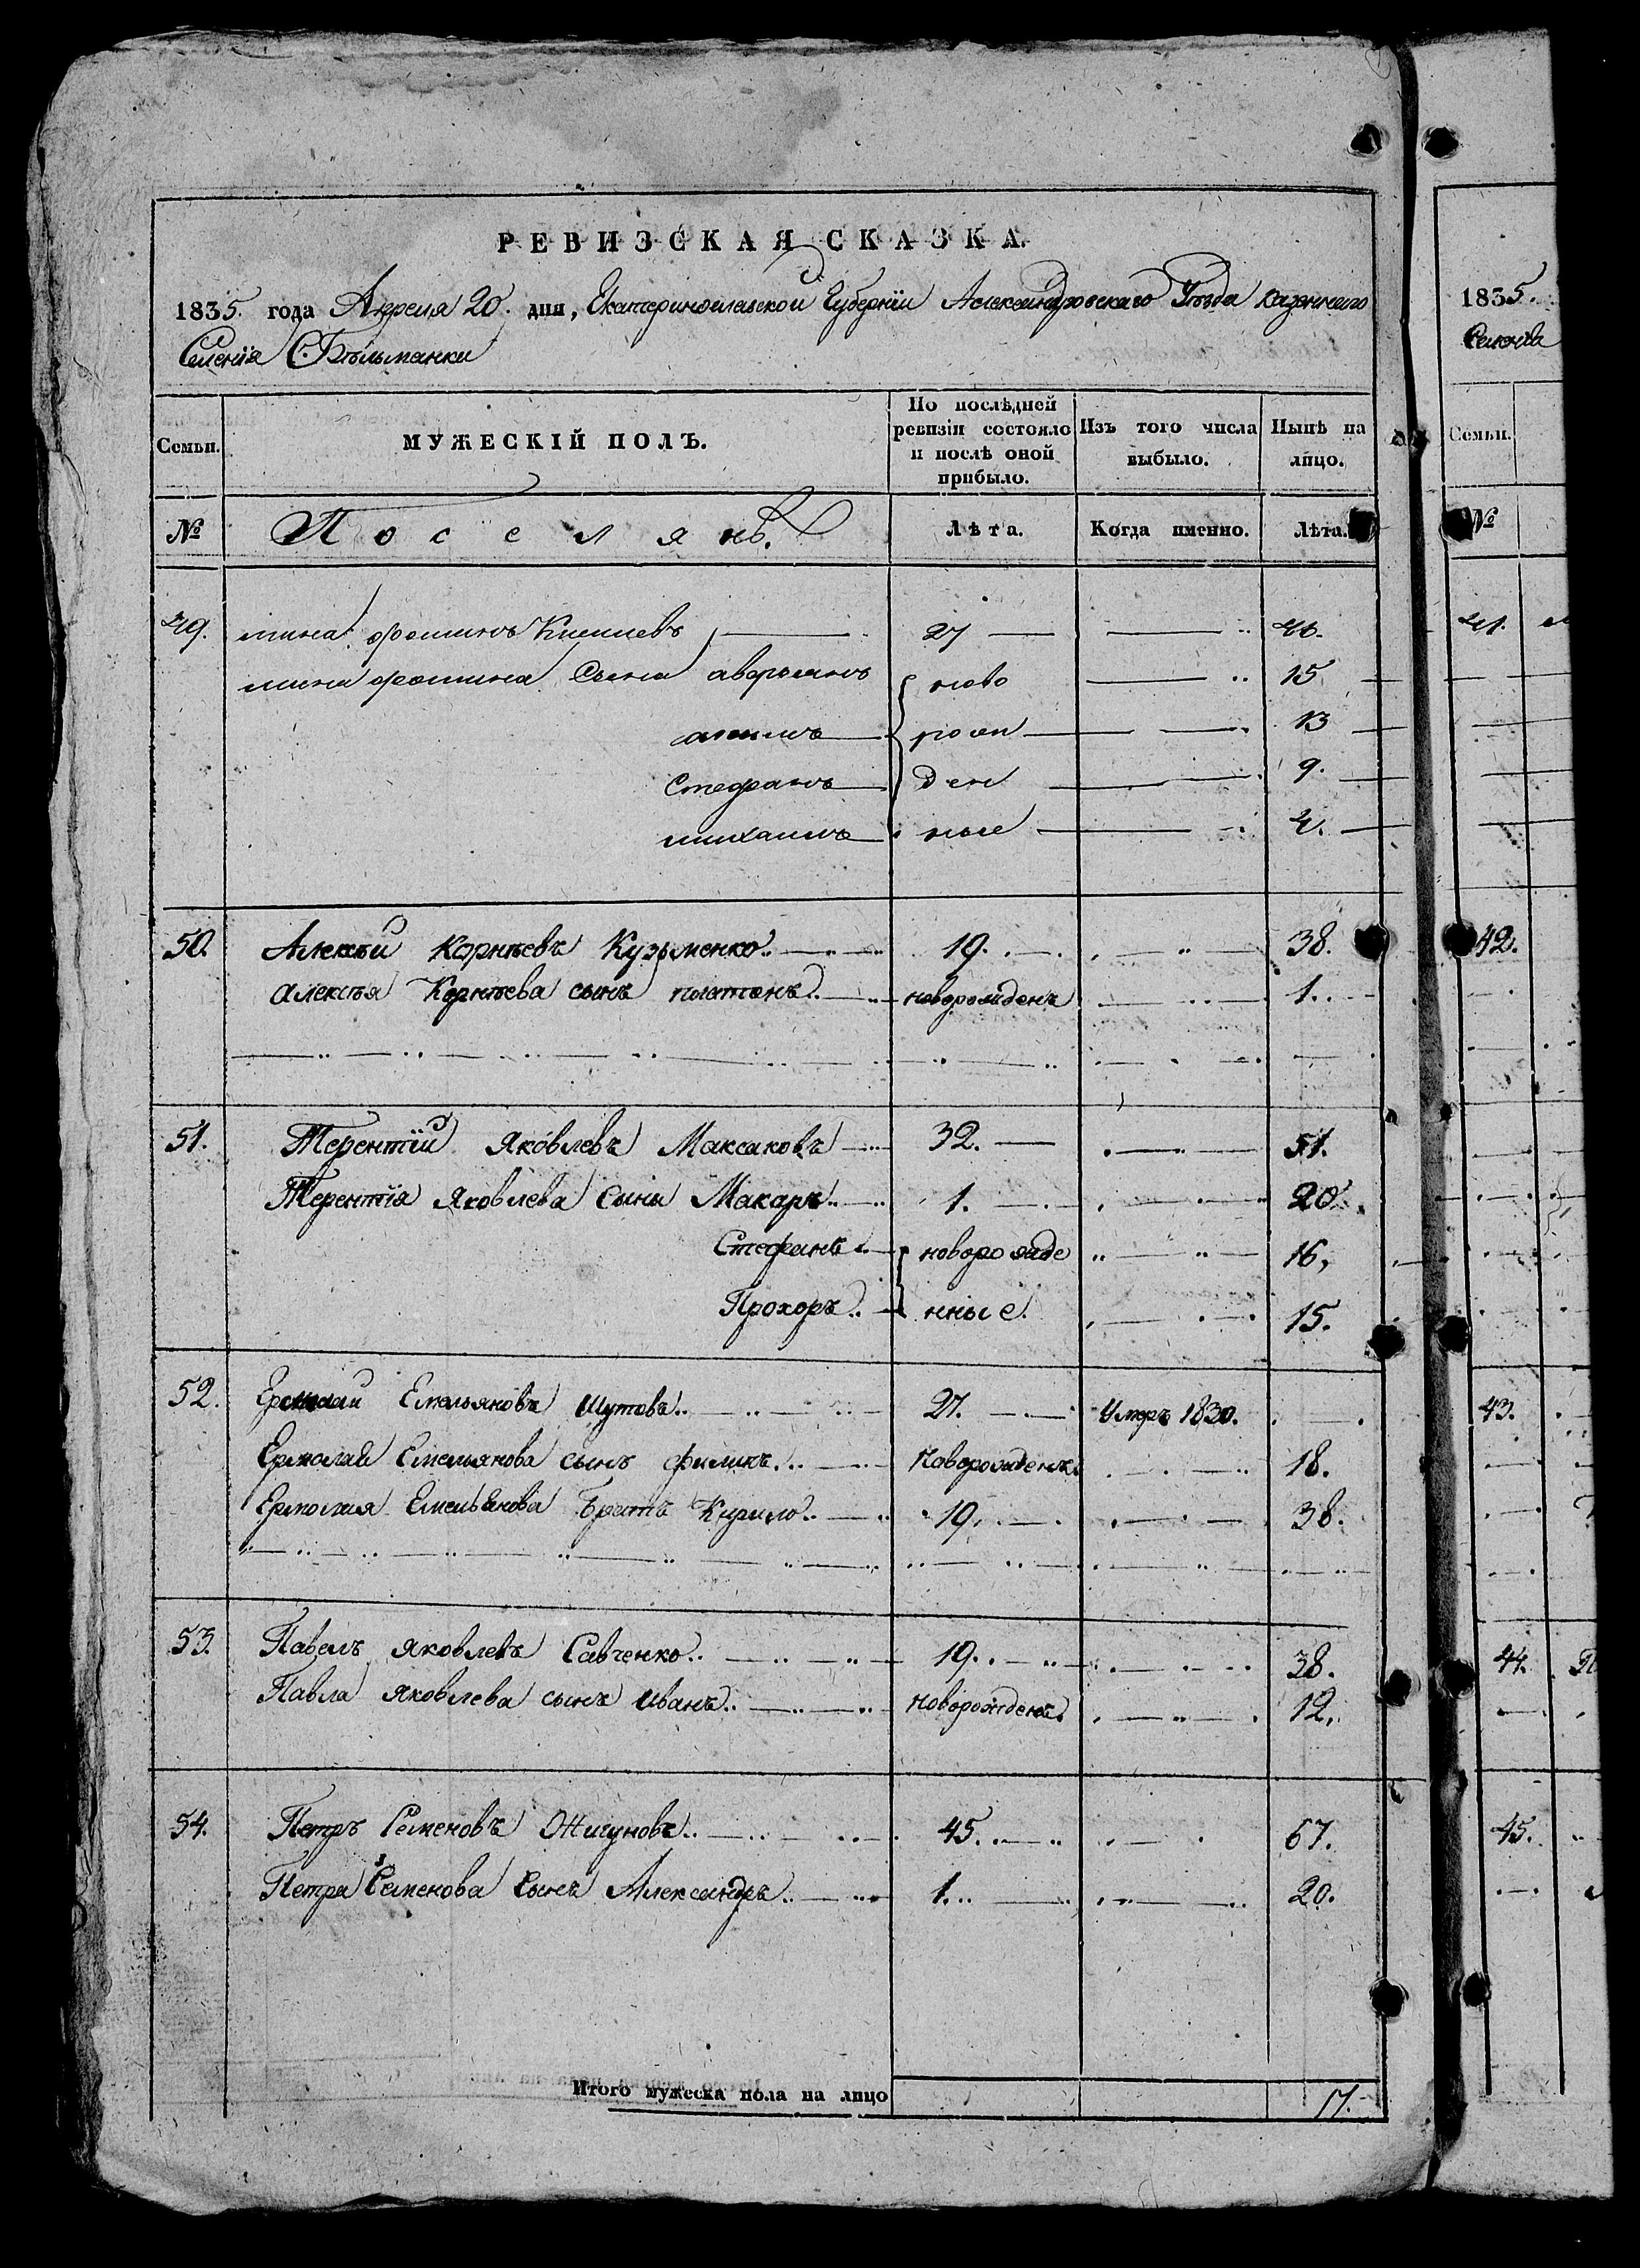 РЕВИЗСКАЯ СКАЗКА.
1835. года Апреля 20. дня, Екатеринославской Губернïи Александровскаго Уѣзда казеннаго
Селенïя Бѣльманки
Семьи. МУЖЕСКІЙ ПОЛЪ. По послѣдней ревизіи состояло и послѣ оной прибыло. Изъ того числа выбыло. Нынѣ на лицо.
№ Поселянъ. Лѣта. Когда именно. Лѣта.
49. мина фоминъ 27
мина фомина Сына аверъянъ ново 15
рожд 13
Стефанъ ден 9.
михаилъ ные 4.
50. Алексѣй Корнѣевъ Кузьменко.. 19. 38.
Алексѣя Корнѣева сынъ платонъ.. новорожденъ 1.
51. Терентïй Яковлевъ Максаковъ 32. 51.
Терентïя Яковлева Сыны Макаръ.. 1. 20.
Стефанъ.. новорожде 16,
Прохоръ.. нные. 15.
52. Ермолай Емельяновъ Шутовъ.. 27. Умеръ 1830.
Ермолая Емельянова сынъ филипъ.. Новорожденъ. 18.
Ермолая Емельянова братъ Кирило.. 19. 38.
53. Павелъ Яковлевъ Савченко.. 19. 38.
Павла Яковлева сынъ иванъ.. Новорожденъ. 12.
54. Петръ Семеновъ Ожигуновъ.. 45. 67.
Петра Семенова Сынъ Александръ.. 1. 20.
Итого мужеска пола на лицо 17.
1835.
Селенïя
Семьи.
№
41.
42.
43.
44.
45.